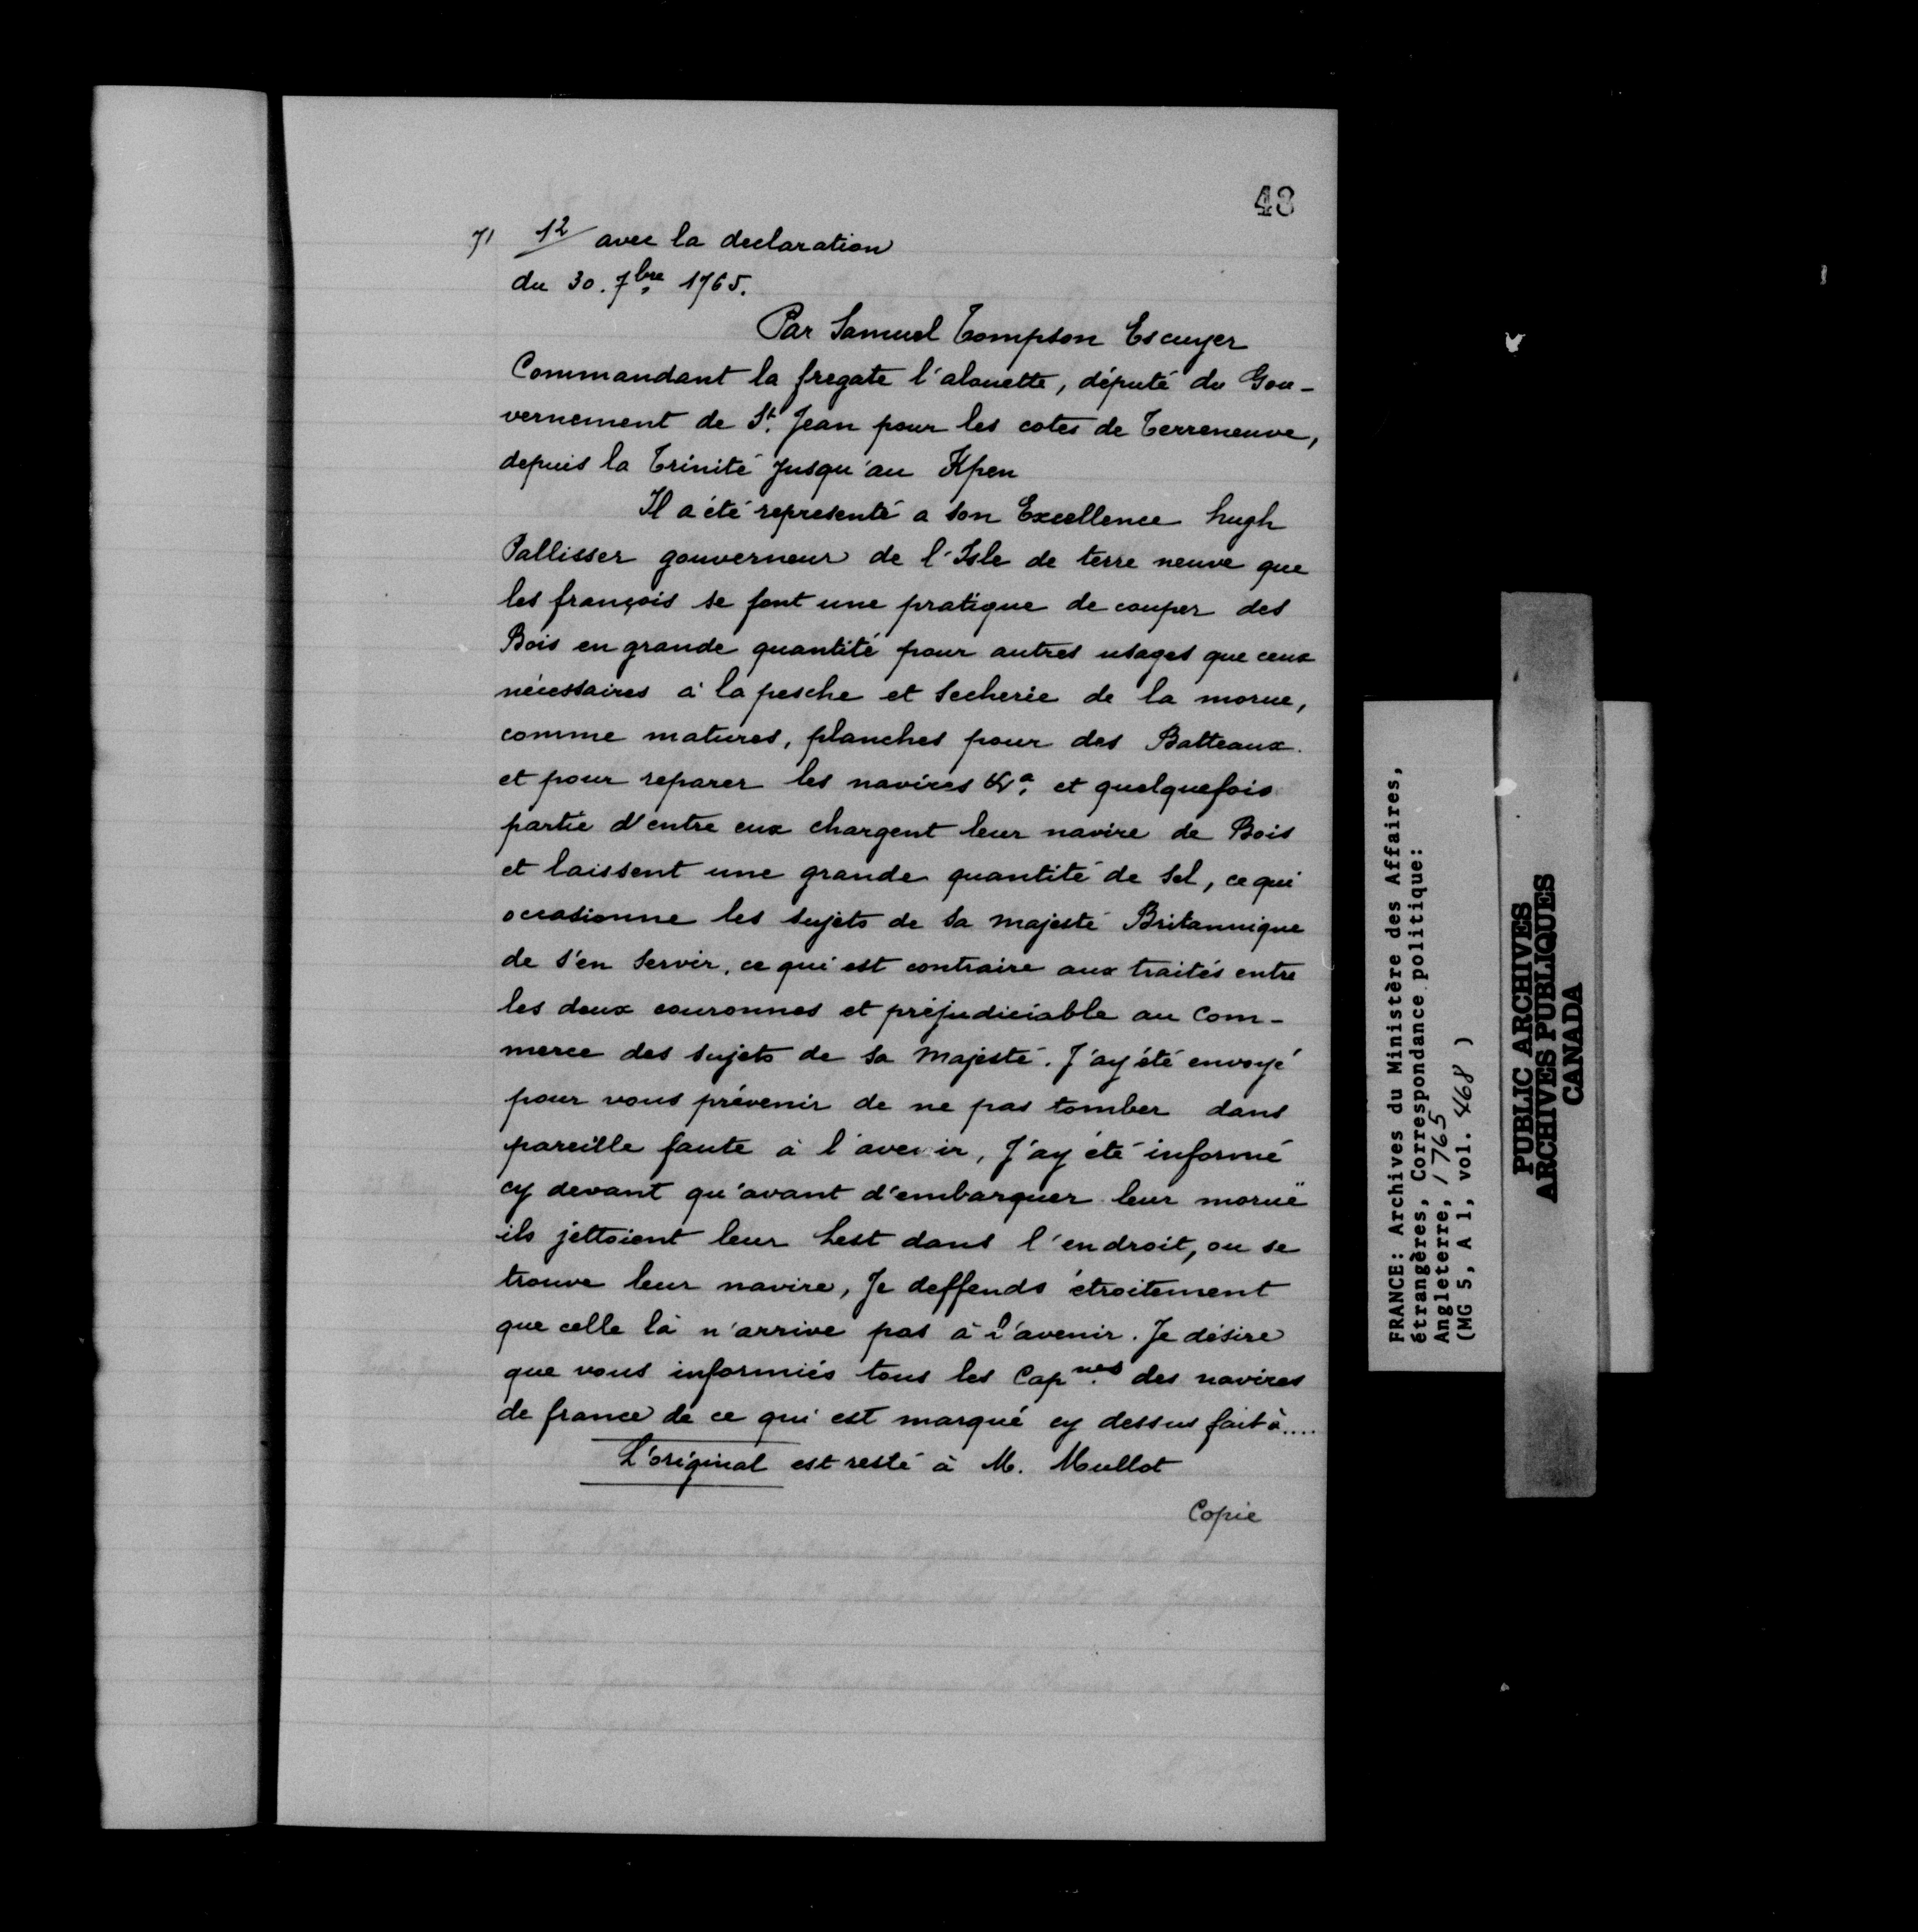 43
71 12/ avec la declaration
du 30. 7bre. 1765.
Par Samuel Tompson Escuyer
Commandant la fregate l'alouette, député du Gou-
vernement de St. Jean pour les cotes de Terreneuve,
depuis la Trinité jusqu'au Kpen
Il a été representé a son Excellence hugh
Pallisser gouverneur de l'Isle de terre neuve que
les françois se font une pratique de couper des
Bois en grande quantité pour autres usages que ceux
nécessaires à la pesche et secherie de la morue,
comme matures, planches pour des Batteaux.
et pour reparer les navires &a. et quelquefois
partie d'entre eux chargent leur navire de Bois
et laissent une grande quantité de sel, ce qui
occasionne les sujets de sa majesté Britannique
de s'en servir, ce qui est contraire aux traités entre
les deux couronnes et préjudiciable au Com-
merce des sujets de sa Majesté. J'ay été envoyé
pour vous prévenir de ne pas tomber dans
pareille faute à l'avenir, J'ay été informé
cy devant qu'avant d'embarquer leur moruë
ils jettoient leur lest dans l'endroit, ou se
trouve leur navire, Je deffends étroitement
que celle là n'arrive pas à l'avenir. Je désire
que vous informiés tous les Capnes. des navires
de france de ce qui est marqué cy dessus fait à....
L'original est resté à M. Mullot
Copie
FRANCE: Archives du Ministère des Affaires,
étrangères, Correspondance politique:
Angleterre, 1765
(MG 5, A 1, vol. 468 )
PUBLIC ARCHIVES
ARCHIVES PUBLIQUES
CANADA